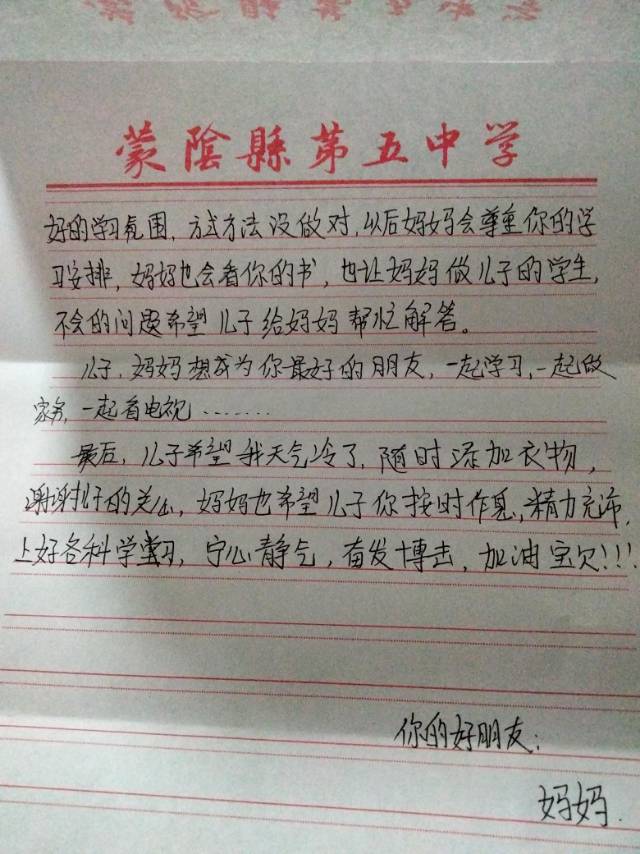 蒙陰縣第五中学
好的学习氛围，方式方法没做对，以后妈妈会尊重你的学
习安排，妈妈也会看你的书，也让妈妈做儿子的学生，
不会的问题希望儿子给妈妈帮忙解答。
儿子，妈妈想成为你最好的朋友，一起学习，一起做
家务，一起看电视……
最后，儿子希望我天气冷了，随时添加衣物，
谢谢儿子的关心，妈妈也希望儿子你按时作息，精力充沛，
上好各科学习，宁心静气，奋发博击，加油宝贝!!!
你的好朋友：
妈妈.